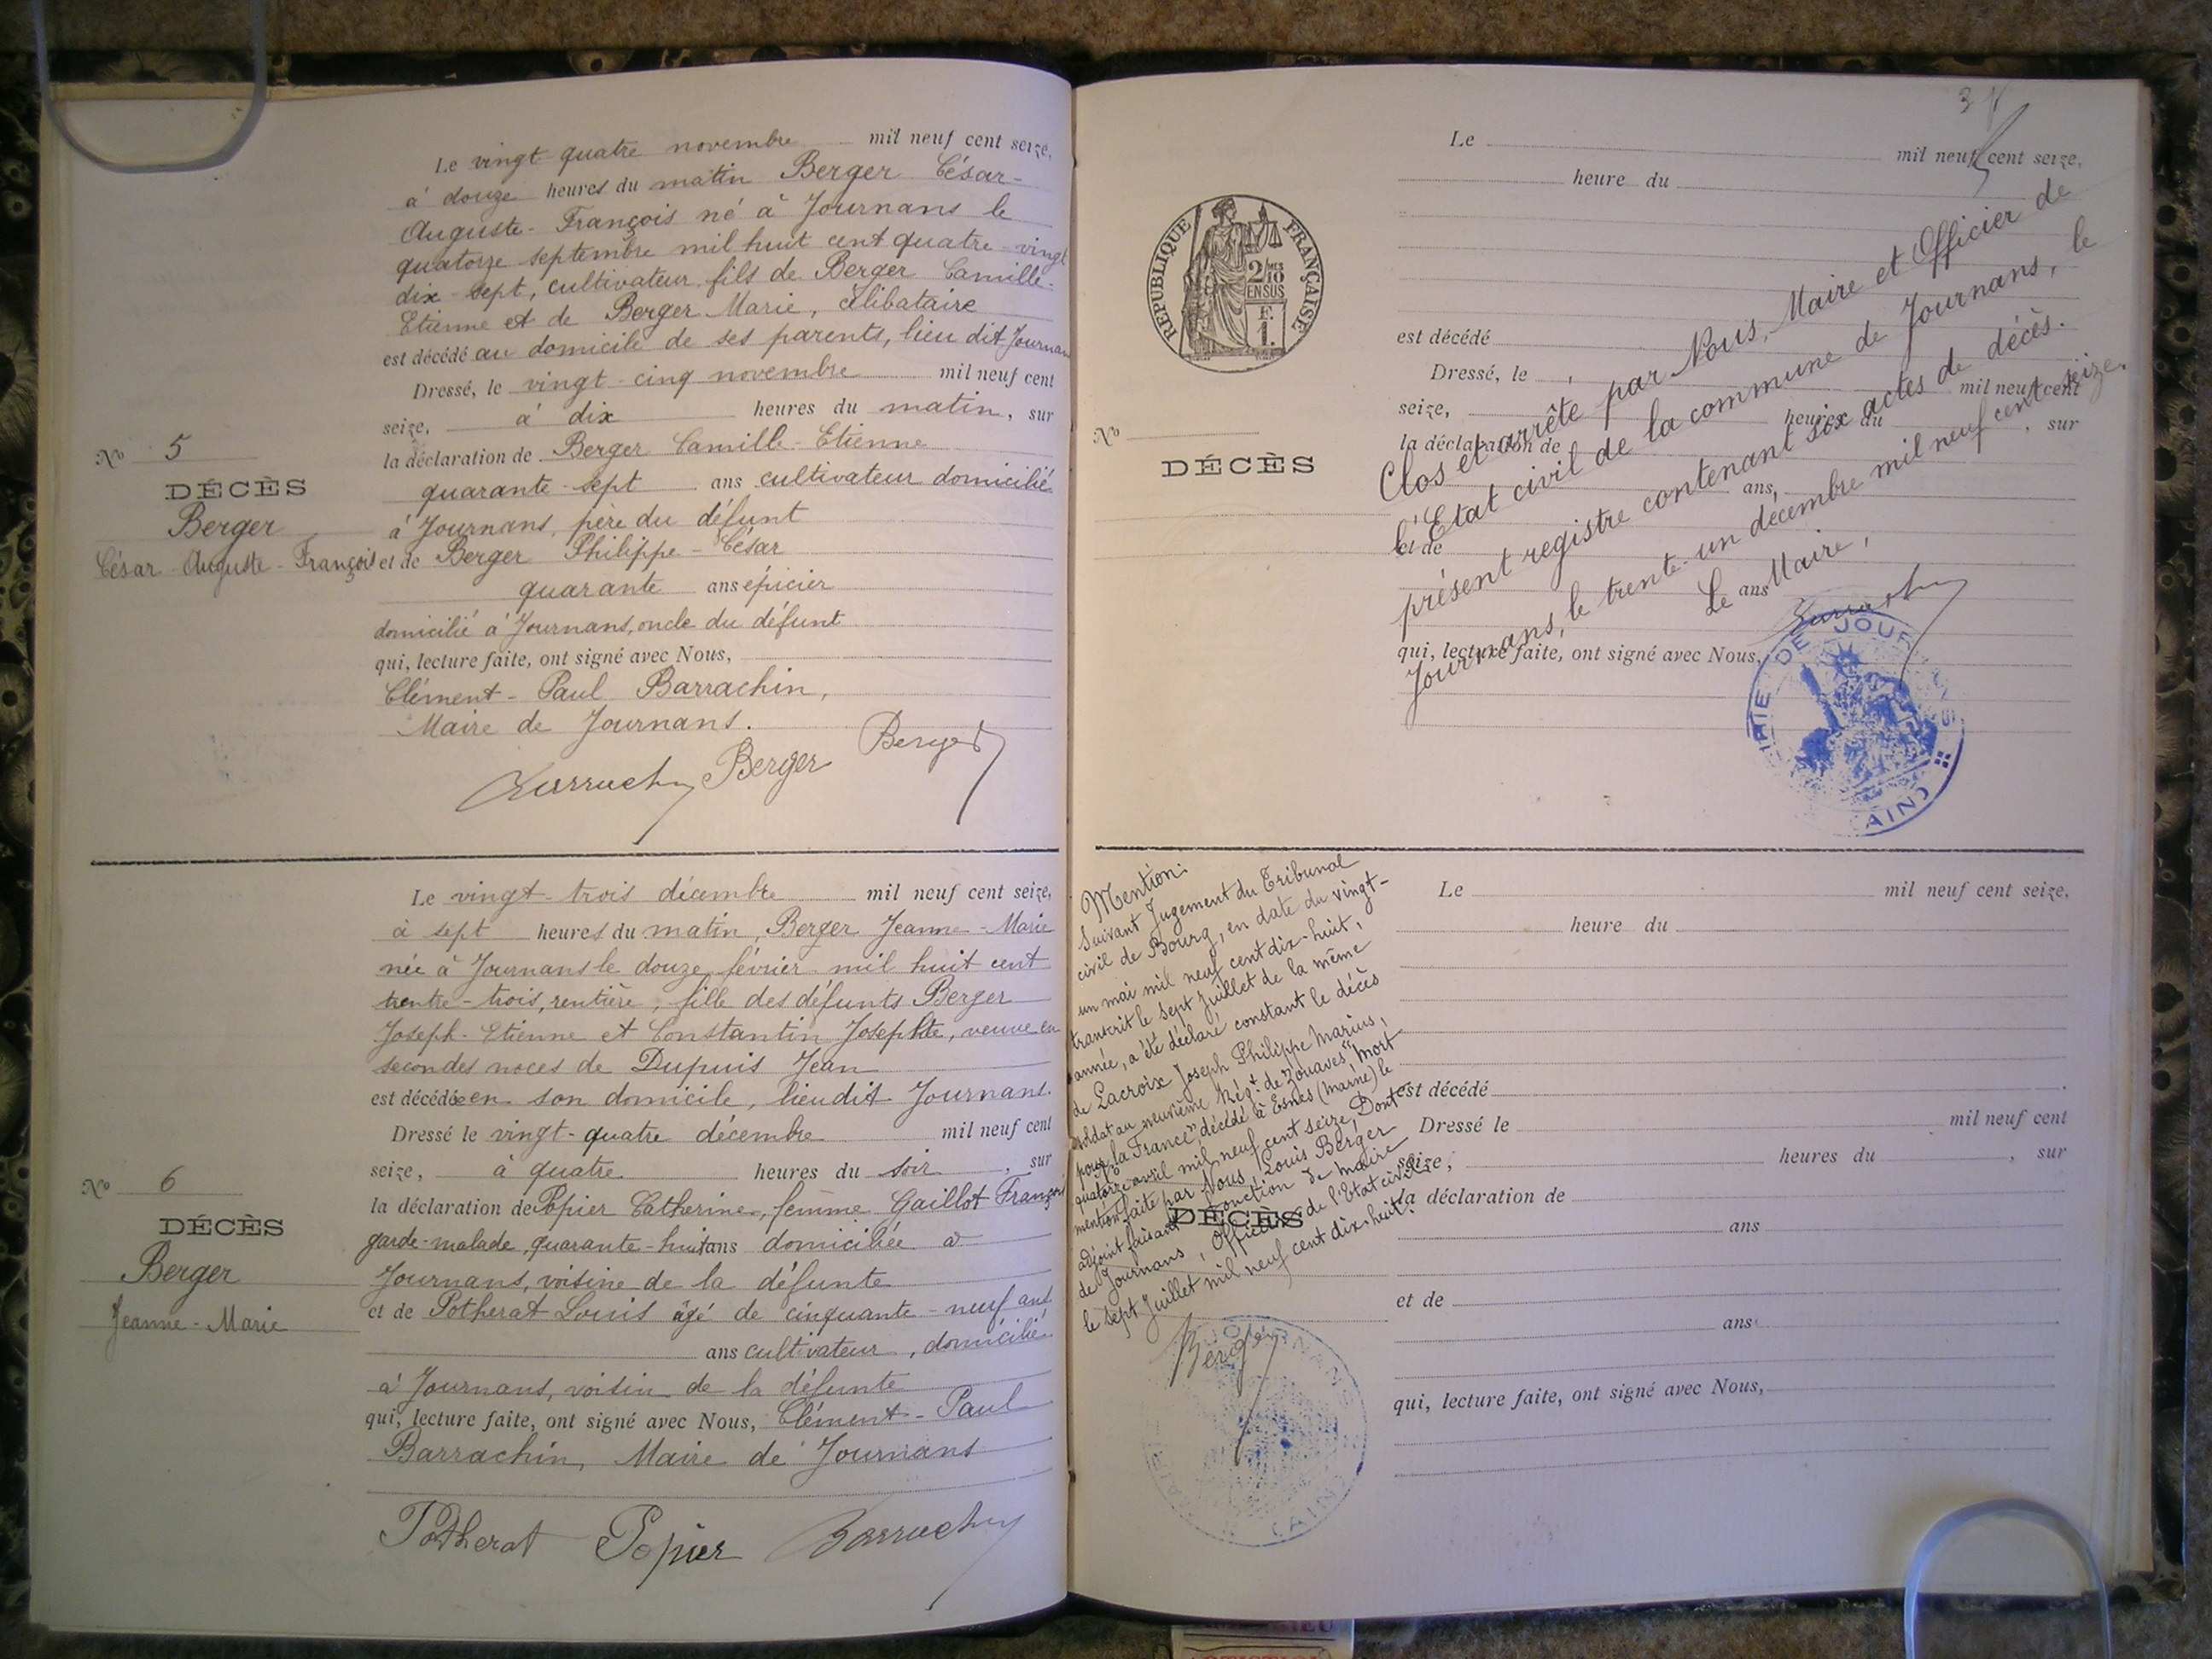 Le vingt-quatre novembre mil neuf cent seize,
à douze heures du matin Berger César-
Auguste-François né à Journans le
quatorze septembre mil huit cent quatre-vingt
dix-sept, cultivateur, fils de Berger Camille-
Etienne et de Berger Marie, célibataire
est décédé au domicile de ses parents, lieu dit Journans
Dressé, le vingt-cinq novembre mil neuf cent
seize, à dix heures du matin, sur
la déclaration de Berger Camille-Etienne
quarante-sept ans cultivateur domicilié
à Journans, père du défunt
et de Berger Philippe-César
quarante ans épicier
domicilié à Journans, oncle du défunt
qui, lecture faite, ont signé avec Nous,
Clément-Paul Barrachin,
Maire de Journans.
Barrachin Berger Berger
No 5
DÉCÈS
Berger
César-Auguste-François
Le vingt-trois décembre mil neuf cent seize,
à sept heures du matin, Berger Jeanne-Marie
née à Journans le douze février mil huit cent
trente-trois, rentière, fille des défunts Berger
Joseph-Etienne et Constantin Josephte, veuve en
secondes noces de Dupuis Jean
est décédée en son domicile, lieu dit Journans.
Dressé le vingt-quatre décembre mil neuf cent
seize, à quatre heures du soir, sur
la déclaration de Popier Catherine, femme Gaillot François
garde-malade, quarante-huit ans domiciliée à
Journans, voisine de la défunte
et de Potherat Louis âgé de cinquante-neuf ans
ans cultivateur, domicilié
à Journans, voisin de la défunte
qui, lecture faite, ont signé avec Nous, Clément-Paul
Barrachin, Maire de Journans
Potherat Popier Barrachin
No 6
DÉCÈS
Berger
Jeanne-Marie
3
Le mil neuf cent seize,
heure du
est décédé
Dressé, le mil neuf cent
seize, heures du , sur
la déclaration de
ans,
et de
ans
qui, lecture faite, ont signé avec Nous,
Clos et arrêté par Nous, Maire et Officier de
l'Etat civil de la commune de Journans, le
présent registre contenant six actes de décès.
Journans, le trente-un décembre mil neuf cent seize.
Le Maire,
Barrachin
MAIRIE DE JOURNANS
(AIN)
RÉPUBLIQUE FRANÇAISE
2/10 MES
EN SUS
F.
1.
No
DÉCÈS
Mention:
Suivant Jugement du Tribunal
civil de Bourg, en date du vingt-
un mai mil neuf cent dix-huit,
transcrit le sept Juillet de la même
année, a été déclaré constant le décès
de Lacroix Joseph Philippe Marius,
soldat au neuvième Régt de Zouaves "mort
pour la France", décédé à Esnes (marne) le
quatorze avril mil neuf cent seize, Dont
mention faite par Nous, Louis Berger
adjoint faisant fonction de maire
de Journans, Officier de l'Etat civil
le sept Juillet mil neuf cent dix-huit.
Berger
JOURNANS
(AIN)
DÉCÈS
Le mil neuf cent seize,
heure du
est décédé
Dressé le mil neuf cent
seize, heures du , sur
la déclaration de
ans
et de
ans
qui, lecture faite, ont signé avec Nous,